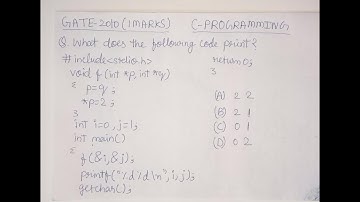 GATE-2010 (1MARKS) C-PROGRAMMING
Q. What does the following code print?
#include<stdio.h>
void f(int *p, int *q)
{
p=q;
*p=2;
}
int i=0, j=1;
int main()
{
f(&i,&j);
printf("%d %d \n", i, j);
getchar();
return 0;
}
(A) 2 2
(B) 2 1
(C) 0 1
(D) 0 2